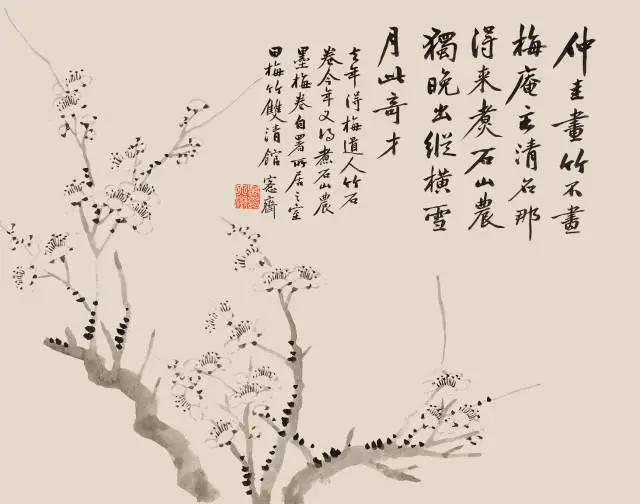 仲圭畫竹不畫
梅庵主清名那
得來煮石山農
獨晚出縱橫雪
月此奇才
去年得梅道人竹石
卷今年又得煮石山農
墨梅卷自署所居之室
曰梅竹雙清館 愙齋